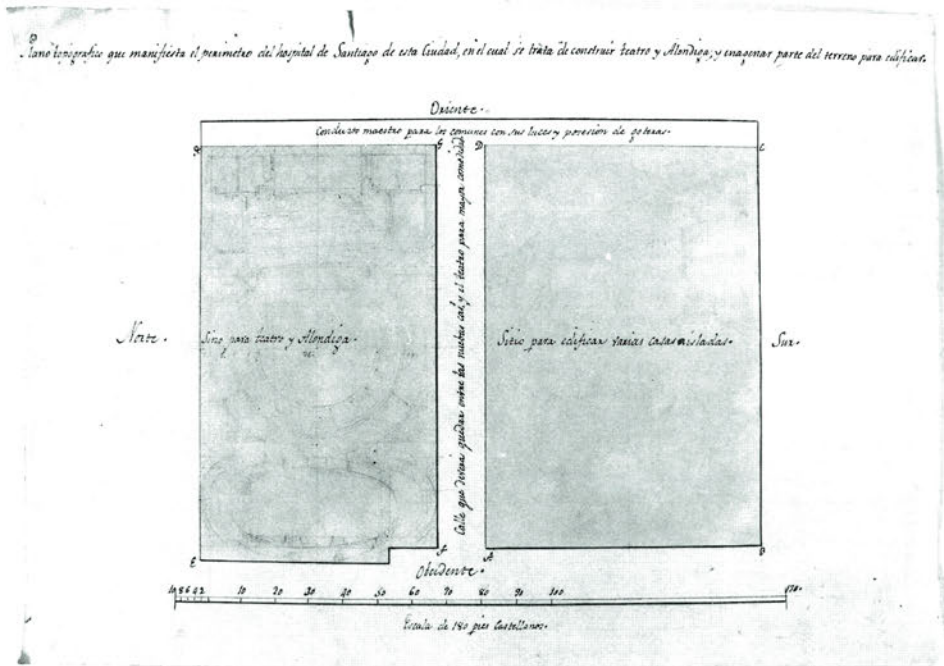 Plano topografico que manifiesta el perimetro del hospital de Santiago de esta Ciudad, en el cual se trata de construir teatro y Alondiga; y enagenar parte del terreno para edificar.
Oriente.
Conducto maestro para los comunes con sus luces y posesion de goteras.
G
D
C
Calle que devera quedar entre las nuebas cas.s y el teatro para mayor comodidad
Norte.
Sitio para teatro y Alondiga.
Sitio para edificar varias casas aisladas.
Sur.
E
F
A
B
Obcidente.
10 8 6 4 2 10 20 30 40 50 60 70 80 90 100 170.
Escala de 180 pies Castellanos.